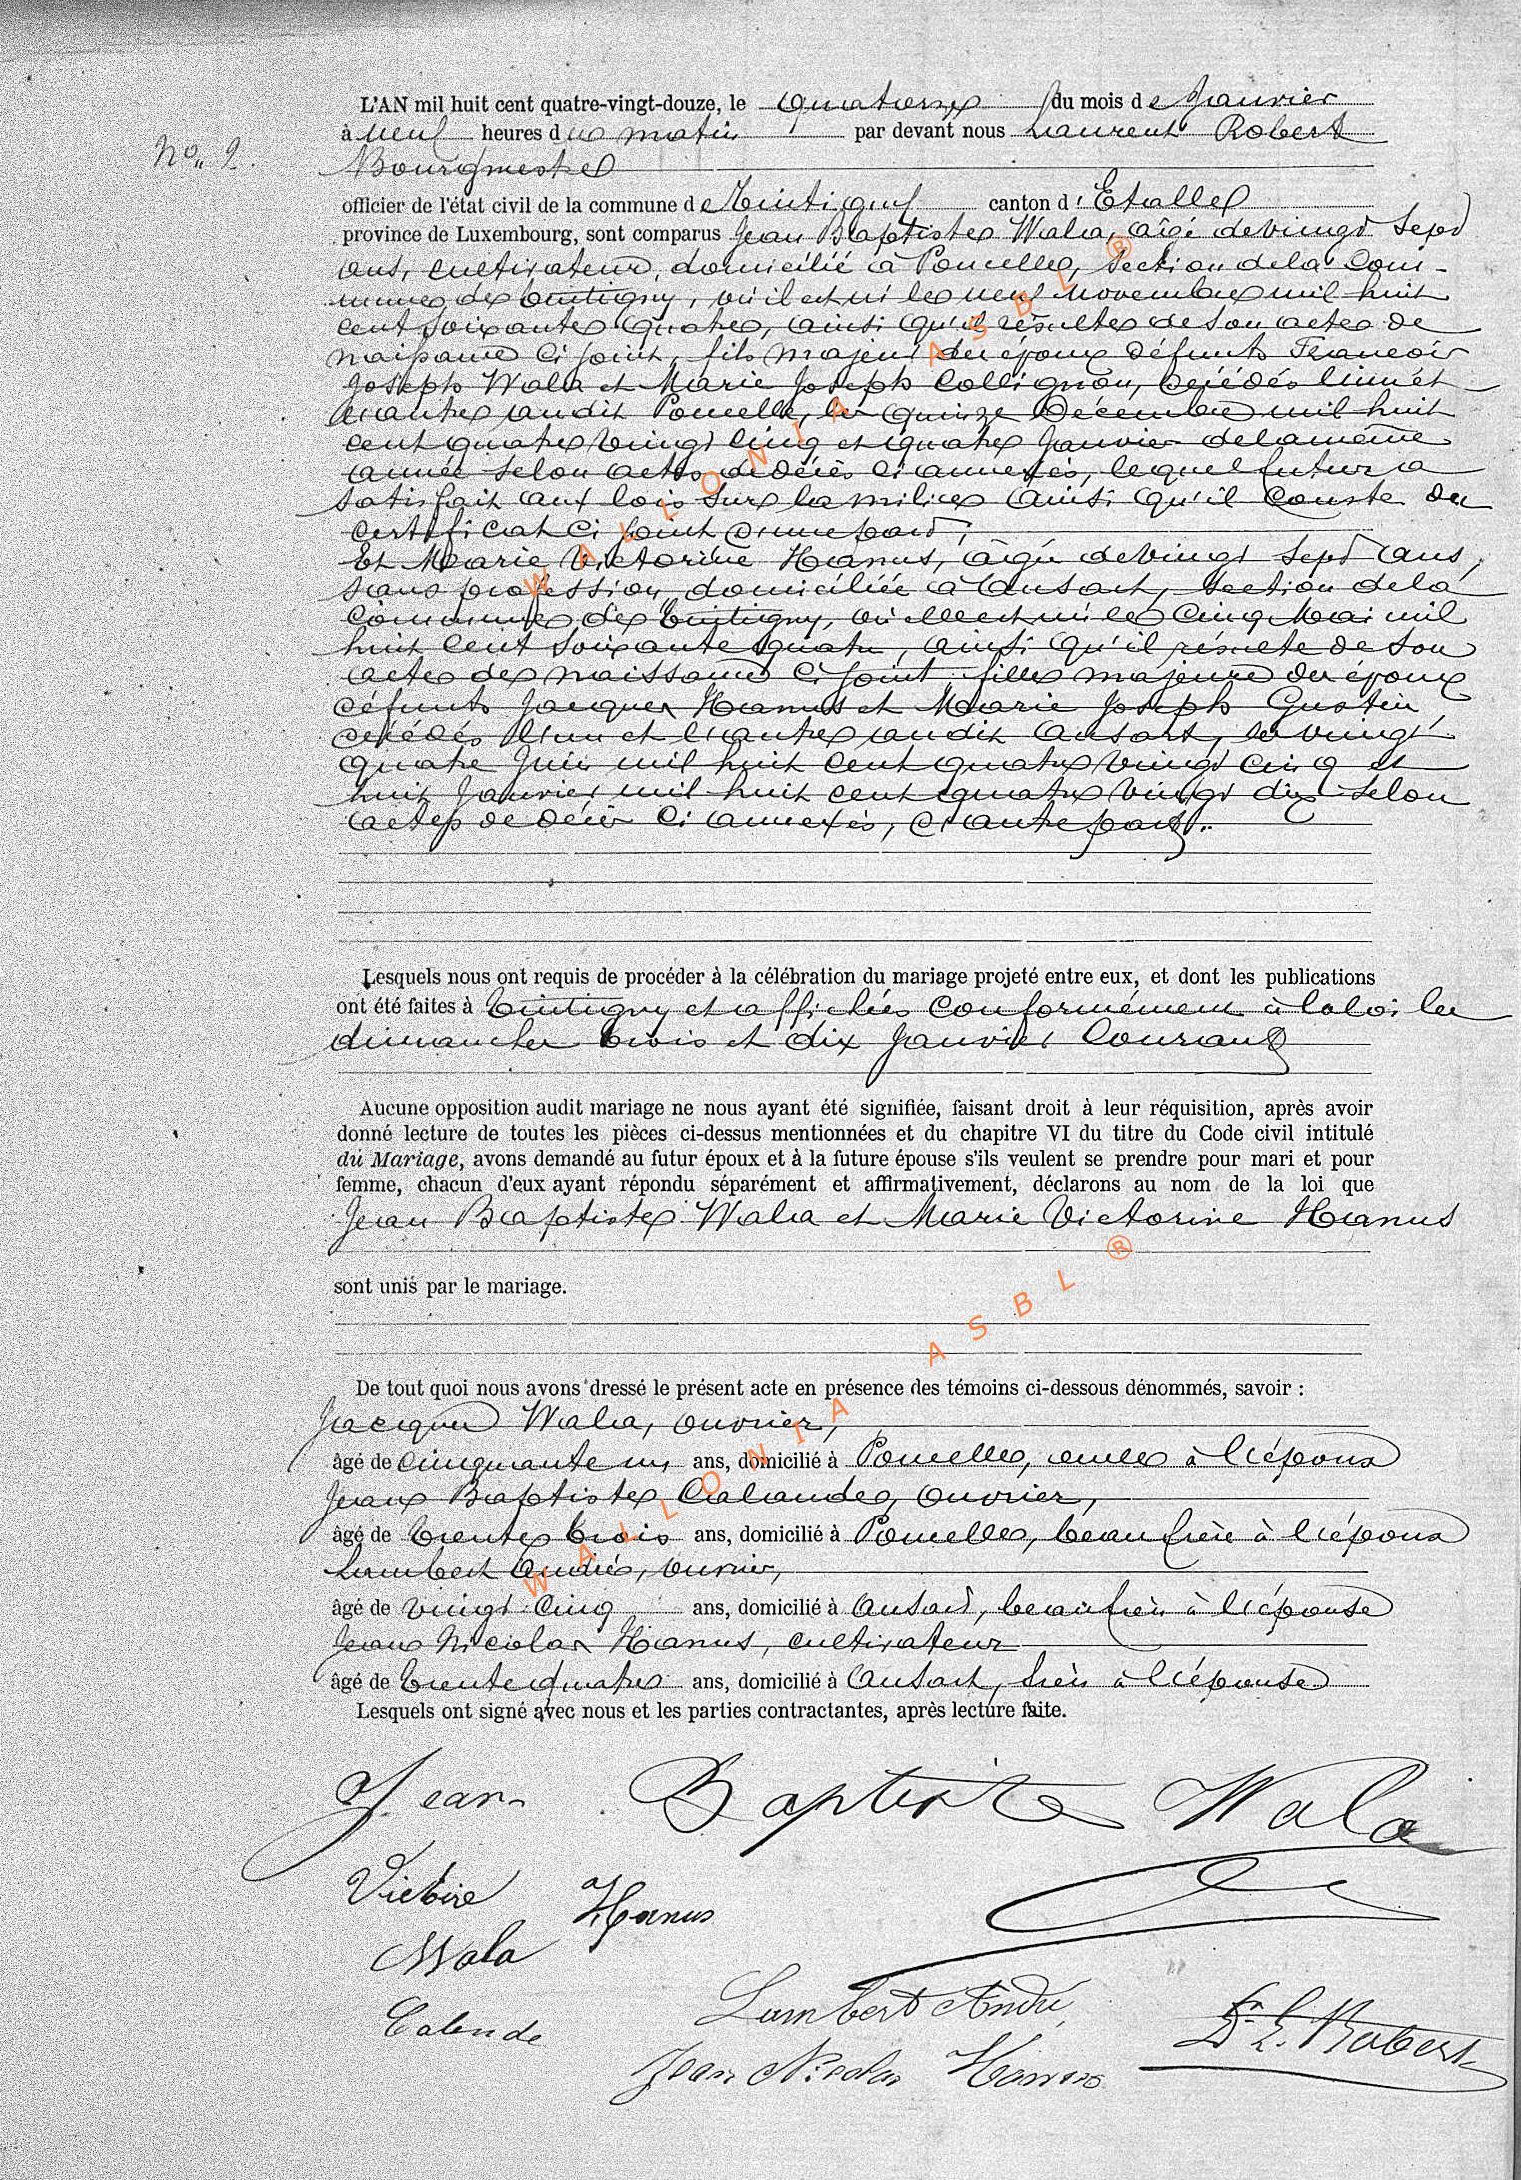 L'AN mil huit cent quatre-vingt-douze, le quatorze du mois de Janvier
à neuf heures du matin par devant nous Laurent Robert
No. 2.
Bourgmestre
officier de l'état civil de la commune de Tintigny canton d'Etalle
province de Luxembourg, sont comparus Jean Baptiste Wala, âgé de vingt sept
ans, cultivateur, domicilié à Poncelle, section de la Com-
mune de Tintigny, où il est né le neuf novembre mil huit
cent soixante quatre, ainsi qu'il résulte de son acte de
naissance ci joint, fils majeur des époux défunts François
Joseph Wala et Marie Joseph Collignon, décédés l'un et
l'autre audit Poncelle, les quinze Décembre mil huit
cent quatre vingt cinq et quatre Janvier de la même
année selon actes de décès ci annexés, lequel futur a
satisfait aux lois sur la milice ainsi qu'il conste du
certificat ci joint d'une part;
Et Marie Victorine Hanus, âgée de vingt sept ans,
sans profession, domiciliée à Ansart, section de la
Commune de Tintigny, où elle est née le cinq Mai mil
huit cent soixante quatre, ainsi qu'il résulte de son
acte de naissance ci joint, fille majeure des époux
défunts Jacques Hanus et Marie Joseph Gustin,
décédés l'un et l'autre audit Ansart, les vingt
quatre Juin mil huit cent quatre vingt cinq et
huit Janvier mil huit cent quatre vingt dix selon
actes de décès ci annexés, d'autre part..
Lesquels nous ont requis de procéder à la célébration du mariage projeté entre eux, et dont les publications
ont été faites à Tintigny et affichées conformément à la loi les
dimanches trois et dix Janvier Courant
Aucune opposition audit mariage ne nous ayant été signifiée, faisant droit à leur réquisition, après avoir
donné lecture de toutes les pièces ci-dessus mentionnées et du chapitre VI du titre du Code civil intitulé
du Mariage, avons demandé au futur époux et à la future épouse s'ils veulent se prendre pour mari et pour
femme, chacun d'eux ayant répondu séparément et affirmativement, déclarons au nom de la loi que
Jean Baptiste Wala et Marie Victorine Hanus
sont unis par le mariage.
De tout quoi nous avons dressé le présent acte en présence des témoins ci-dessous dénommés, savoir :
Jacques Wala, ouvrier,
âgé de cinquante un ans, domicilié à Poncelle, oncle à l'époux
Jean Baptiste Calande, ouvrier,
âgé de trente trois ans, domicilié à Poncelle, beau frère à l'époux
Lambert André, ouvrier,
âgé de vingt cinq ans, domicilié à Ansart, beau frère à l'épouse
Jean Nicolas Hanus, cultivateur
âgé de trente quatre ans, domicilié à Ansart, frère à l'épouse
Lesquels ont signé avec nous et les parties contractantes, après lecture faite.
Jean Baptiste Wala
Victoire Hanus
Wala
Calende
Lambert André
Jean Nicolas Hanus
Dr. L. Robert
WALLONIA ASBL ®
WALLONIA ASBL ®